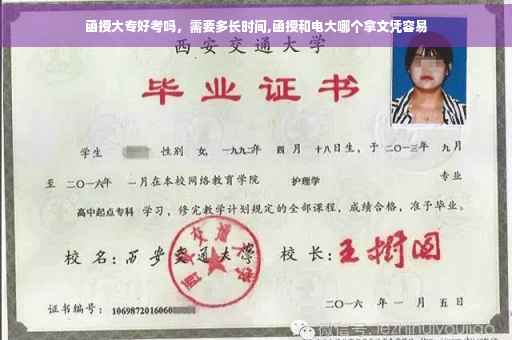 函授大专好考吗，需要多长时间,函授和电大哪个拿文凭容易
西安交通大学
毕业证书
学生 性别 女，一九九二年 四月 十八日生，于二〇一三年 九月
至 二〇一六年 一月在本校网络教育学院 护理学 专业
高中起点专科 学习，修完教学计划规定的全部课程，成绩合格，准予毕业。
校 名：西安交通大学 校 长：王树国
西安交通大学
证书编号：1069872016060
二〇一六 年 一 月 五 日
微信号: jezhinuyoujiao